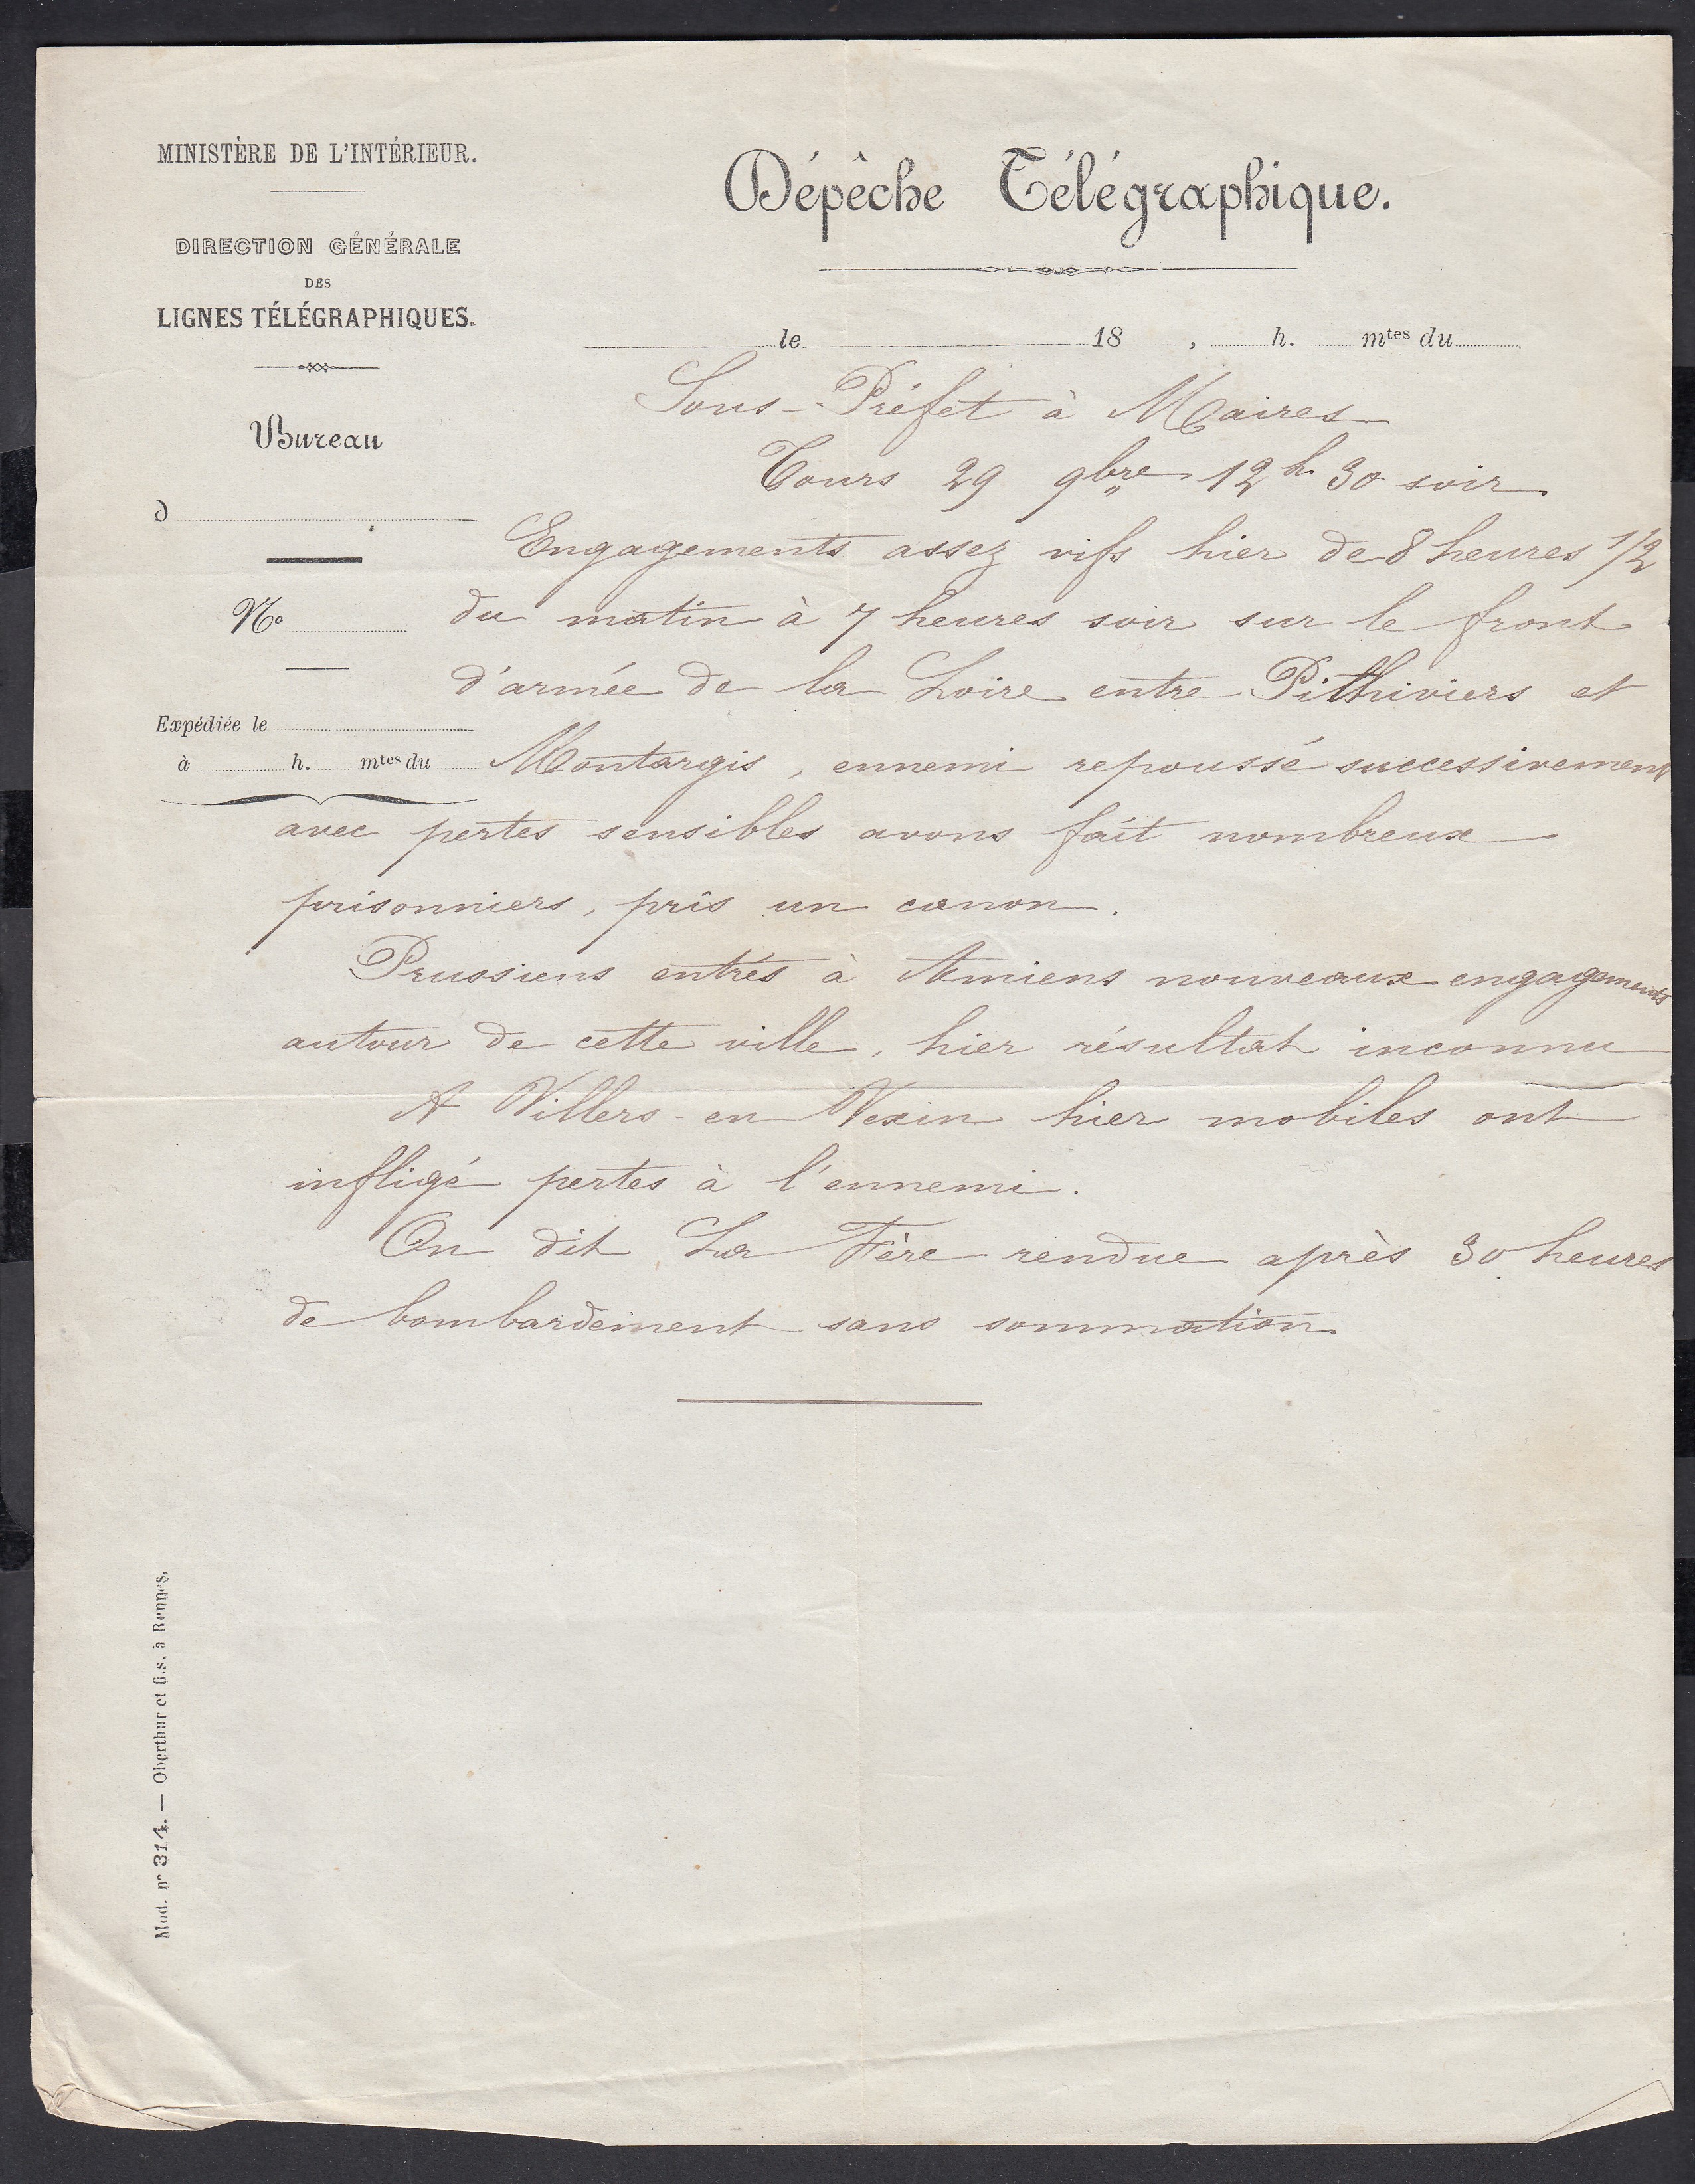 MINISTÈRE DE L'INTÉRIEUR.
DIRECTION GÉNÉRALE
DES
LIGNES TÉLÉGRAPHIQUES.
Bureau
d
N°
Expédiée le
à h. mtes du
Dépêche Télégraphique.
le 18 , h. mtes du
Sous-Préfet à Maires
Tours 29 9bre 12h 30 soir
Engagements assez vifs hier de 8 heures 1/2
du matin à 7 heures soir sur le front
d'armée de la Loire entre Pithiviers et
Montargis, ennemi repoussé successivement
avec pertes sensibles avons fait nombreux
prisonniers, pris un canon.
Prussiens entrés à Amiens nouveaux engagements
autour de cette ville, hier résultat inconnu
A Villers-en Vexin hier mobiles ont
infligé pertes à l'ennemi.
On dit La Fère rendue après 30 heures
de bombardement sans sommation
Mod. n° 314. — Oberthur et fils, à Rennes.